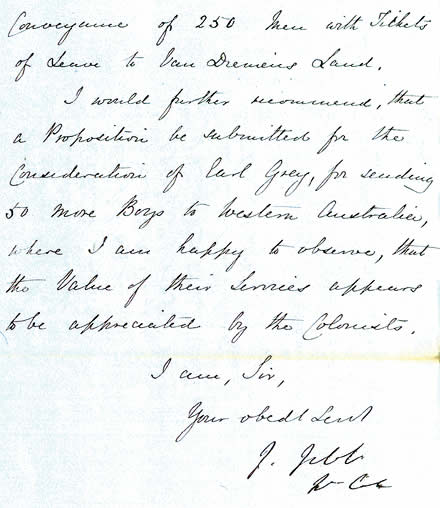 Conveyance of 250 Men with Tickets
of Leave to Van Diemens Land.
I would further recommend, that
a Proposition be submitted for the
Consideration of Earl Grey, for sending
50 more Boys to Western Australia,
where I am happy to observe, that
the Value of their Services appears
to be appreciated by the Colonists.
I am, Sir,
Your obedt Servt
J. Jebb